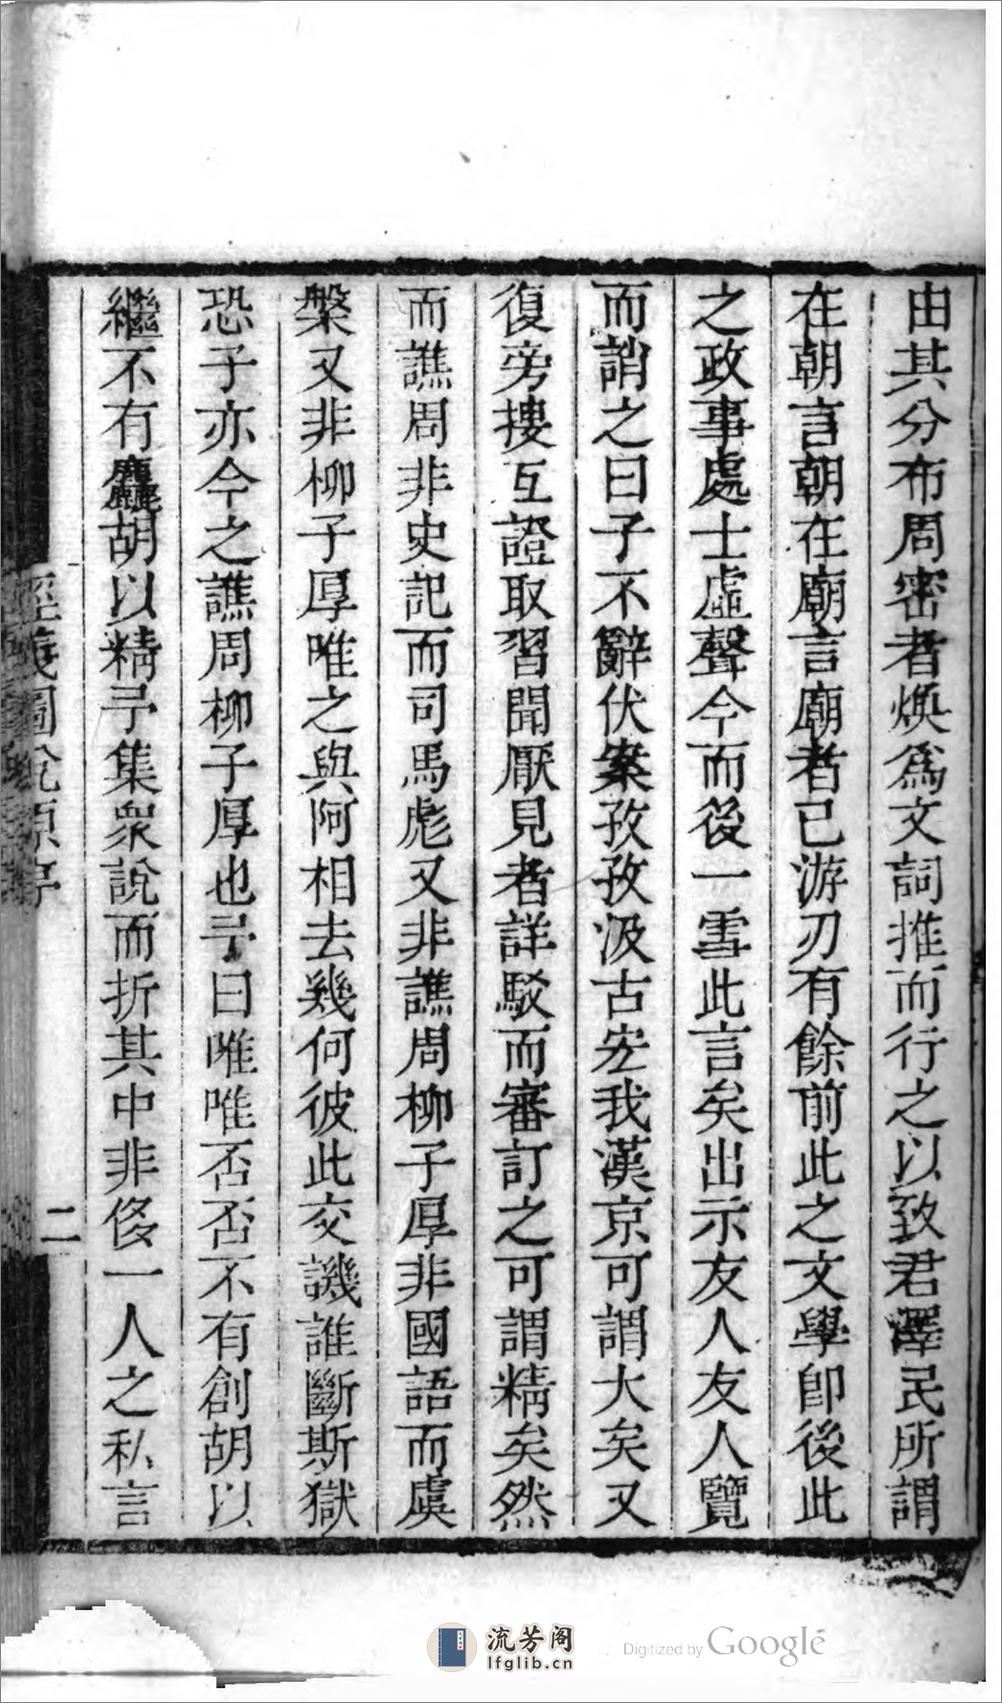 由其分布周密者煥爲文詞推而行之以致君澤民所謂
在朝言朝在廟言廟者已游刃有餘前此之文學卽後此
之政事處士虛聲今而後一雪此言矣出示友人友人覽
而誚之曰子不辭伏案孜孜汲古宏我漢京可謂大矣又
復旁摟互證取習聞厭見者詳駁而審訂之可謂精矣然
而譙周非史記而司馬彪又非譙周柳子厚非國語而虞
槃又非柳子厚唯之與阿相去幾何彼此交譏誰斷斯獄
恐子亦今之譙周柳子厚也予曰唯唯否否不有創胡以
繼不有麤胡以精予集衆說而折其中非侈一人之私言
經義圖說原序
二
流芳阁
lfglib.cn
Digitized by Google